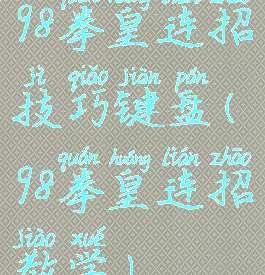 98拳皇连招
jì qiǎo jiàn pán
技巧键盘(
quán huáng lián zhāo
98拳皇连招
jiào xué
教学)